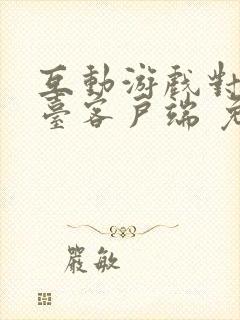 互動游戲對
臺客戶端
嚴敏